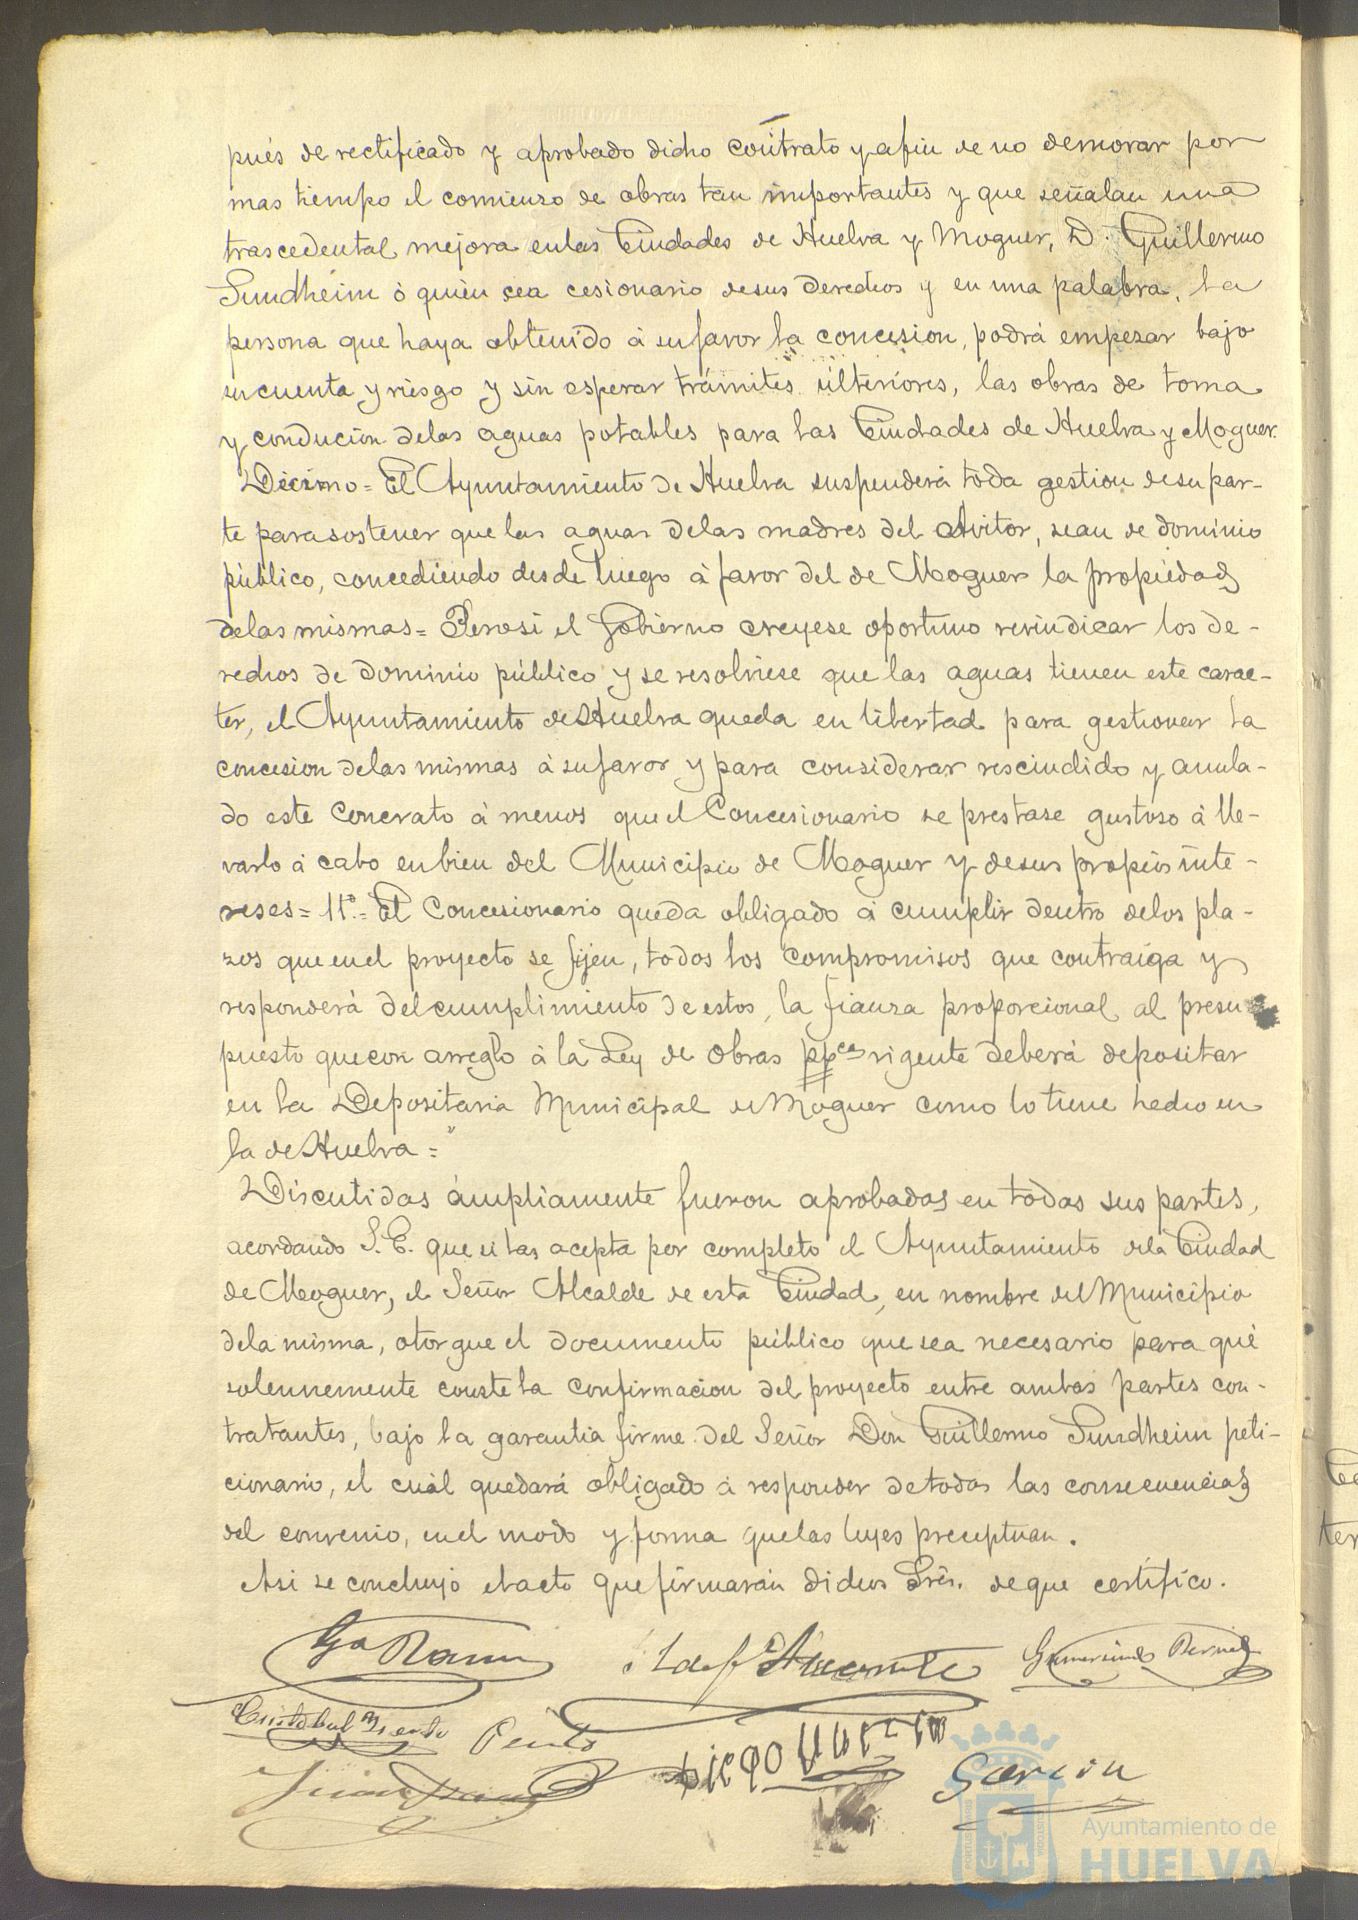 pués de rectificado y aprobado dicho contrato y afin de no demorar por
mas tiempo el comienzo de obras tan importantes y que señalan una
trascedental mejora en las Ciudades de Huelva y Moguer, D. Guillermo
Sundheim ó quien sea cesionario de sus derechos y en una palabra, la
persona que haya obtenido á su favor la concesion, podrá empezar bajo
su cuenta y riesgo y sin esperar trámites ulteriores, las obras de toma
y condución de las aguas potables para las Ciudades de Huelva y Moguer.
Décimo = El Ayuntamiento de Huelva suspenderá toda gestion de su par-
te para sostener que las aguas de las madres del Avitor, sean de dominio
público, concediendo desde luego á favor del de Moguer la propiedad
de las mismas = Pero si el Gobierno creyese oportuno revindicar los de-
rechos de dominio público y se resolviese que las aguas tienen este carac-
ter, el Ayuntamiento de Huelva queda en libertad para gestionar la
concesion de las mismas á su favor y para considerar rescindido y anula-
do este Concrato á menos que el Concesionario se prestase gustoso á lle-
varlo á cabo en bien del Municipio de Moguer y de sus propios inte-
reses = 11º = El Concesionario queda obligado á cumplir dentro de los pla-
zos que en el proyecto se fijen, todos los compromisos que contraiga y
responderá del cumplimiento de estos, la fianza proporcional al presu
puesto que con arreglo á la Ley de Obras ppcas vigente deberá depositar
en la Depositaria Municipal de Moguer como lo tiene hecho en
la de Huelva = "
Discutidas ámpliamente fueron aprobadas en todas sus partes,
acordando S. E. que si las acepta por completo el Ayuntamiento de la Ciudad
de Moguer, el Señor Alcalde de esta Ciudad, en nombre del Municipio
de la misma, otorgue el documento público que sea necesario para qué
solennemente conste la confirmacion del proyecto entre ambas partes con-
tratantes, bajo la garantia firme del Señor Don Guillermo Sundheim peti-
cionario, el cuál quedará obligado á responder de todas las consecuencias
del convenio, en el modo y forma que las leyes preceptuan.
Asi se concluyó el acto que firmarán dichos Sres. de que certifico.
Garcia
Ayuntamiento de
HUELVA